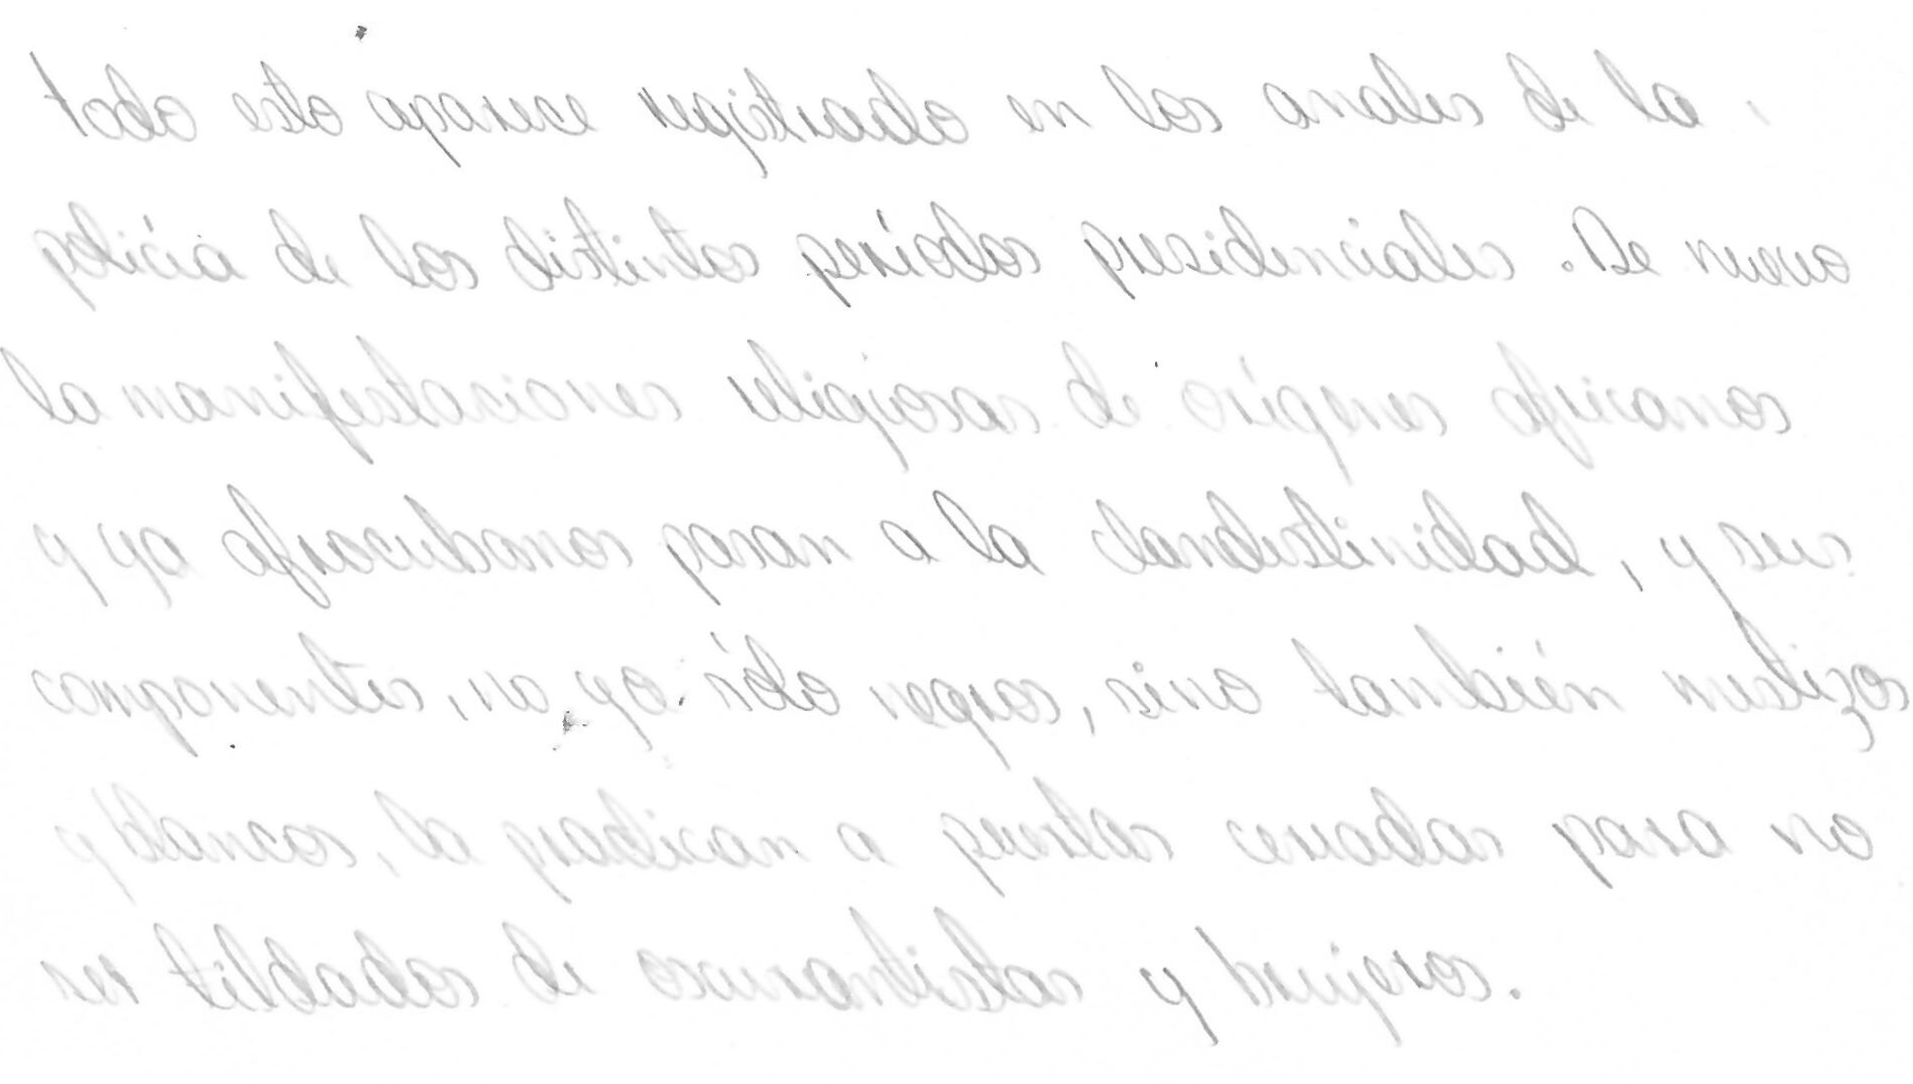 todo esto aparece registrado en los anales de la
policía de los distintos períodos presidenciales. De nuevo
la manifestaciones religiosas de orígenes africanos
y ya afrocubanos pasan a la clandestinidad, y sus
componentes, no ya sólo negros, sino también mestizos
y blancos, la practican a puertas cerradas para no
ser tildados de oscurantistas y brujeros.